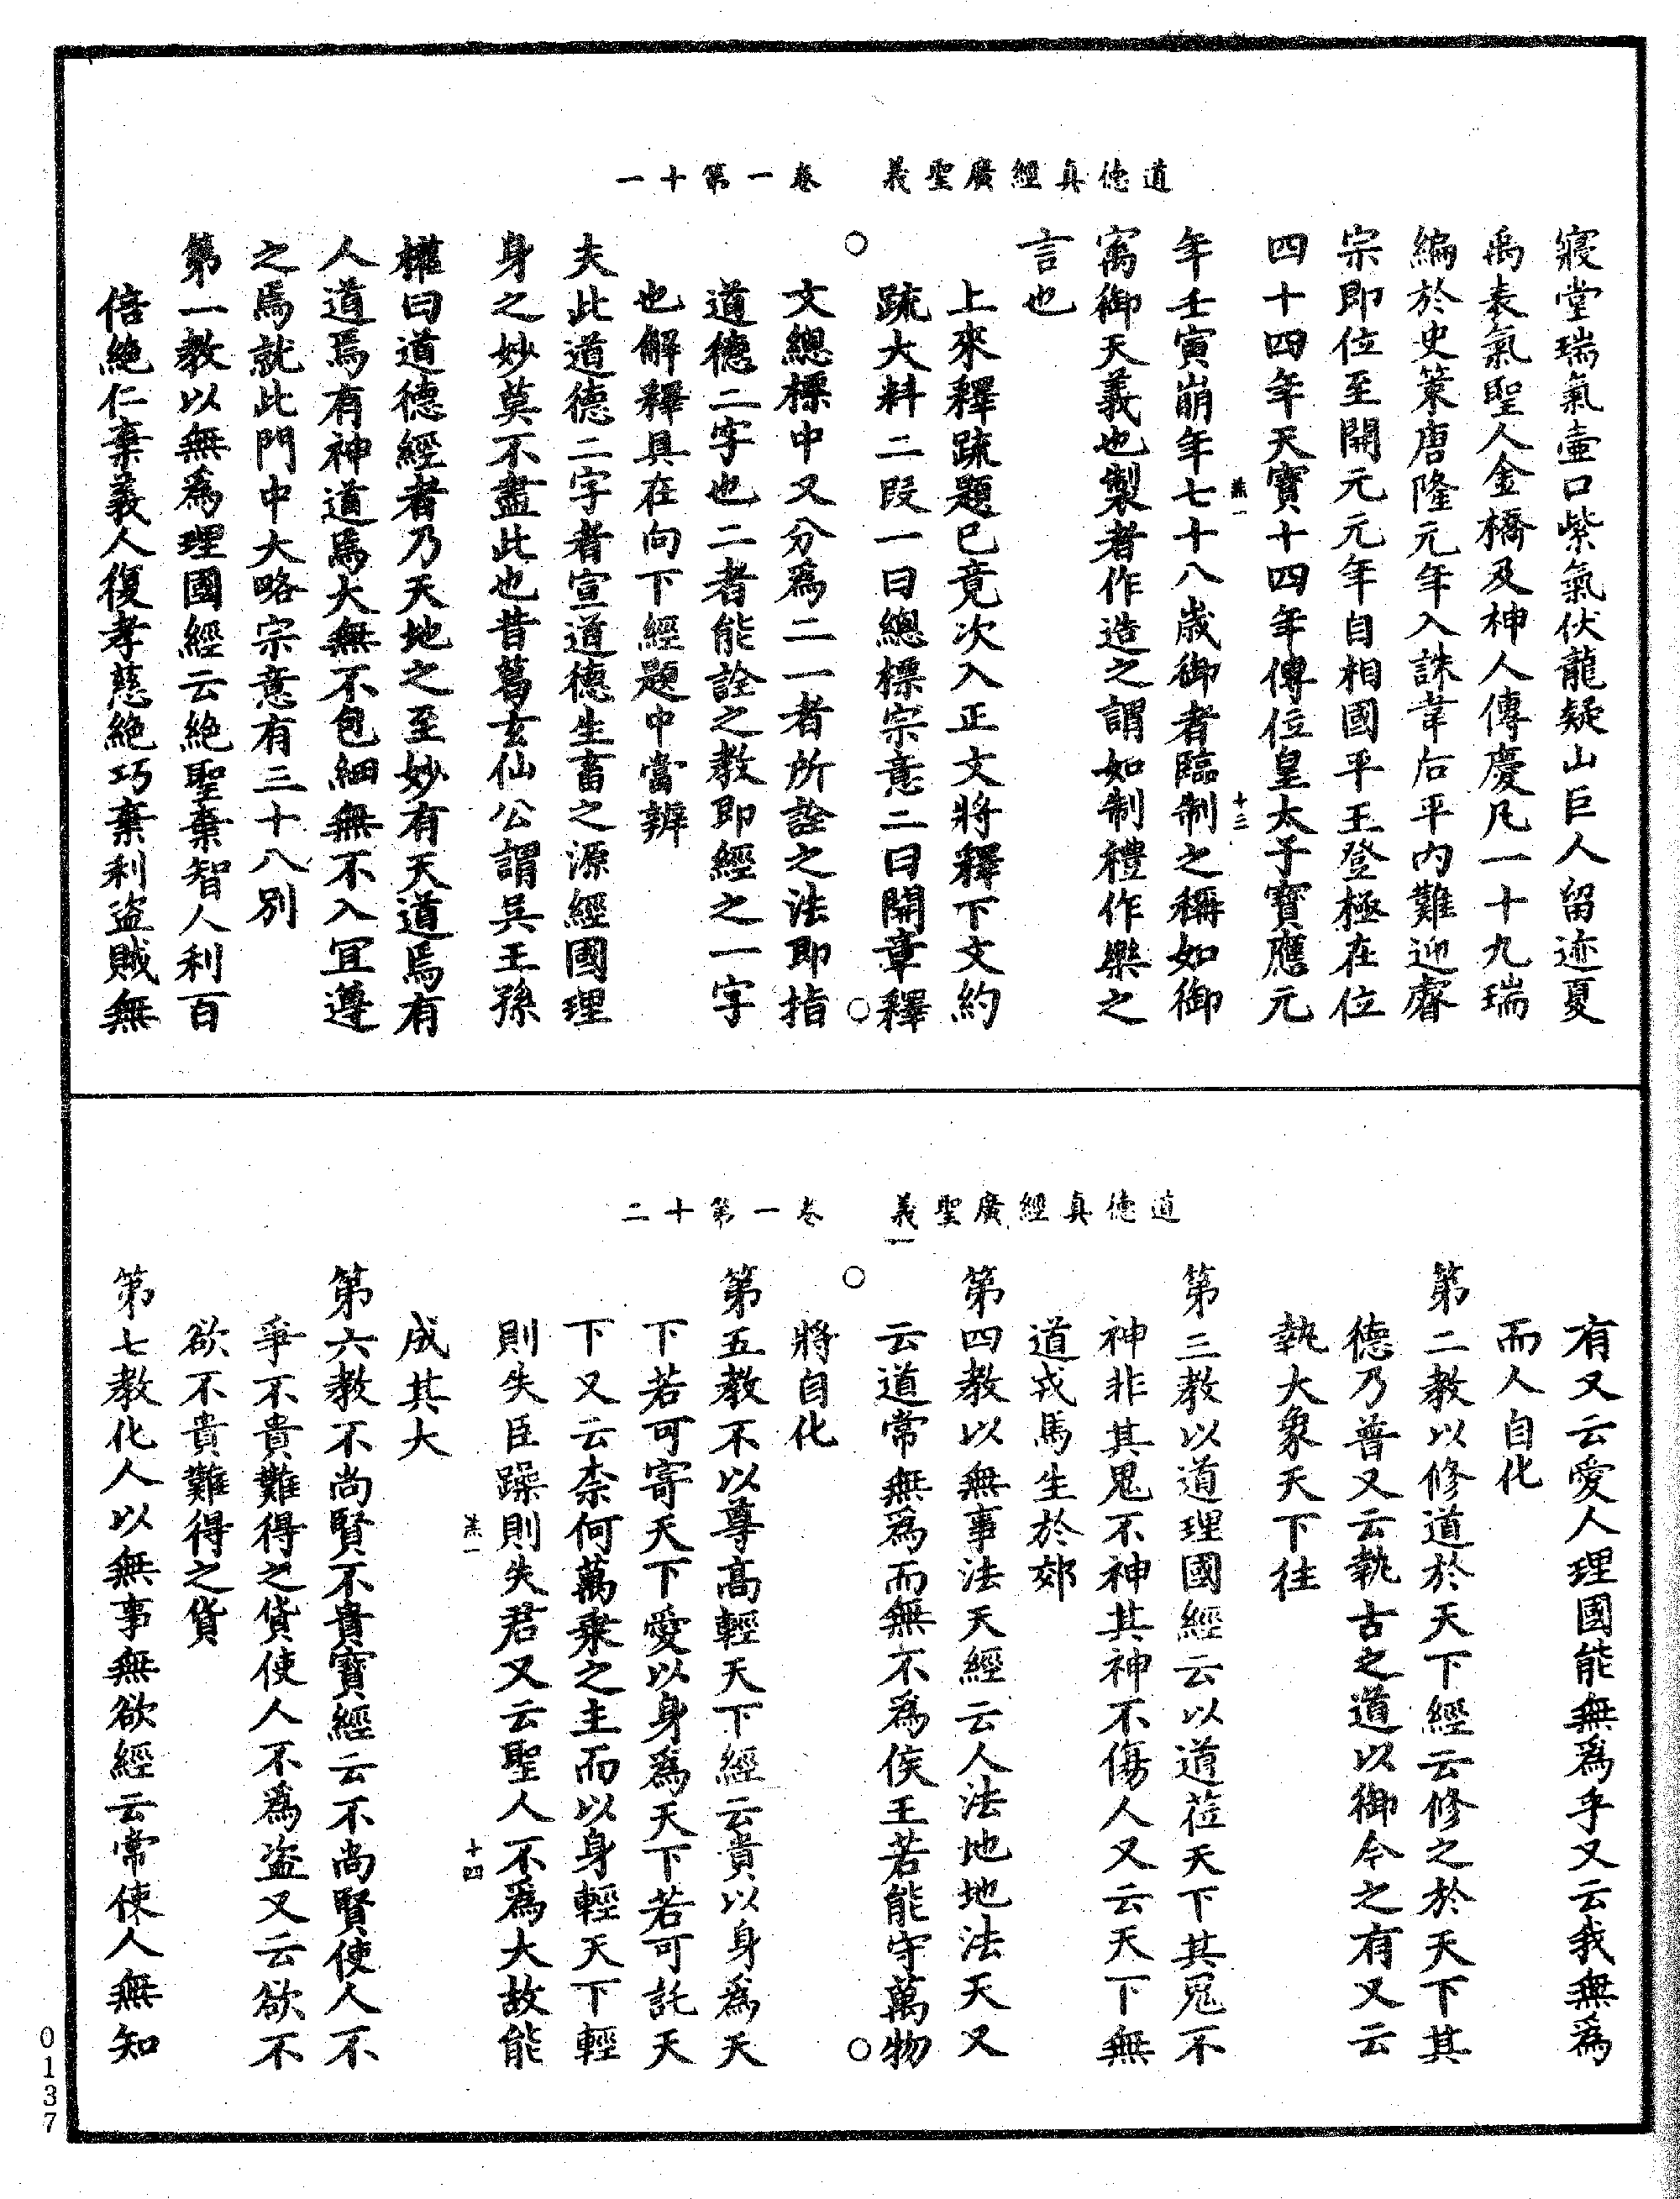 道德真經廣聖義　卷一第十一
寢堂瑞氣壷口紫氣伏龍疑山巨人留迹夏
禹表氣聖人金橋及神人傳慶凡一十九瑞
編於史策唐隆元年入誅韋后平内難迎睿
宗即位至開元元年自相國平王登極在位
四十四年天寶十四年傳位皇太子寶應元
羔一　十三
年壬寅崩年七十八歲御者臨制之稱如御
㝢御天義也製者作造之謂如制禮作樂之
言也
上來釋疏題已竟次入正文將釋下文約
疏大料二段一曰總標宗意二曰開章釋
文總標中又分爲二一者所詮之法即指
道德二字也二者能詮之教即經之一字
也解釋具在向下經題中當辨
夫此道德二字者宣道德生畜之源經國理
身之妙莫不盡此也昔葛玄仙公謂吳王孫
權曰道德經者乃天地之至妙有天道焉有
人道焉有神道焉大無不包細無不入冝遵
之焉就此門中大略宗意有三十八別
第一教以無爲理國經云絶聖棄智人利百
倍絶仁棄義人復孝慈絶巧棄利盗賊無
道德真經廣聖義　卷一第十二
有又云愛人理國能無爲乎又云我無爲
而人自化
第二教以修道於天下經云修之於天下其
德乃普又云執古之道以御今之有又云
執大象天下往
第三教以道理國經云以道莅天下其鬼不
神非其鬼不神其神不傷人又云天下無
道戎馬生於郊
第四教以無事法天經云人法地地法天又
云道常無爲而無不爲侯王若能守萬物
將自化
第五教不以尊高輕天下經云貴以身爲天
下若可寄天下愛以身爲天下若可託天
下又云柰何萬乗之主而以身輕天下輕
則失臣躁則失君又云聖人不爲大故能
羔一　十四
成其大
第六教不尚賢不貴寶經云不尚賢使人不
爭不貴難得之貨使人不爲盗又云欲不
欲不貴難得之貨
第七教化人以無事無欲經云常使人無知
0137